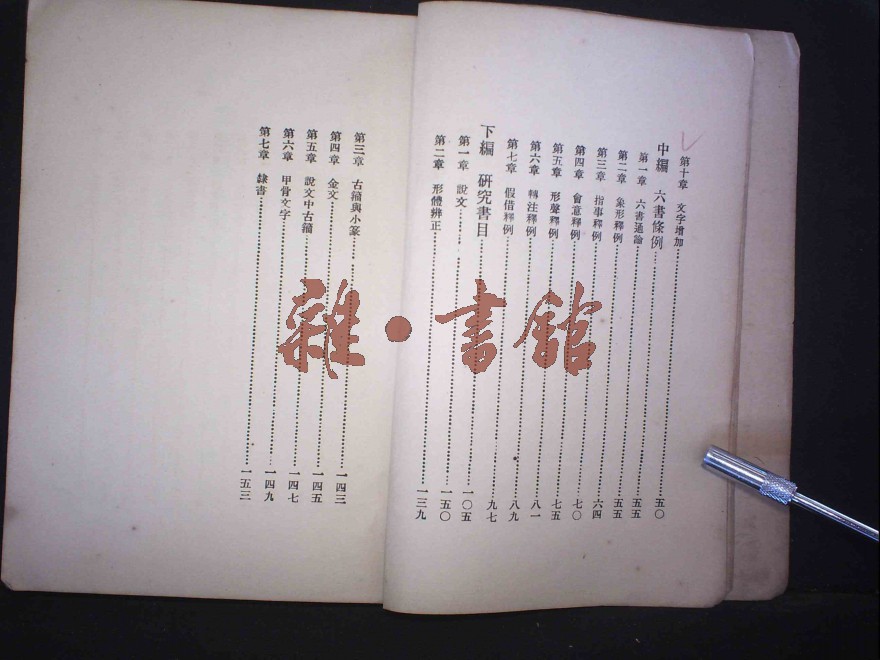 第十章 文字增加…………五〇
中編 六書條例…………五五
第一章 六書通論…………五五
第二章 象形釋例…………六四
第三章 指事釋例…………七〇
第四章 會意釋例…………七五
第五章 形聲釋例…………八一
第六章 轉注釋例…………八九
第七章 假借釋例…………九七
下編 研究書目…………一〇五
第一章 說文…………一五〇
第二章 形體辨正…………一三九
第三章 古籀與小篆…………一四三
第四章 金文…………一四五
第五章 說文中古籀…………一四七
第六章 甲骨文字…………一四九
第七章 隸書…………一五三
雜·書館